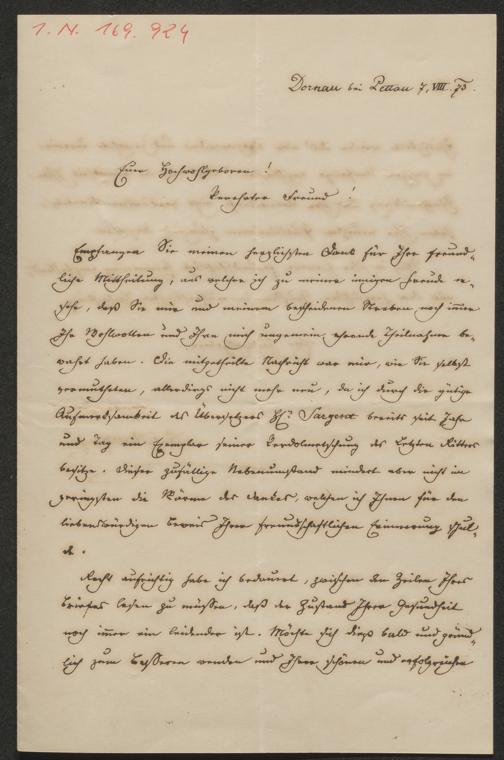 I. N. 169.924
Dornau bei Pettau 7. VIII. 73.
Euer Hochwohlgeboren!
Verehrter Freund!
Empfangen Sie meinen herzlichsten Dank für Ihre freund-
liche Mittheilung, aus welcher ich zu meiner innigen Freude er-
sehe, daß Sie mir und meinem bescheidenen Streben noch immer
Ihr Wohlwollen und Ihre mich ungemein ehrende Theilnahme be-
wahrt haben. Die mitgetheilte Nachricht war mir, wie Sie selbst
vermutheten, allerdings nicht mehr neu, da ich durch die gütige
Aufmerksamkeit des Übersetzers H. Sargent bereits seit Jahr
und Tag ein Exemplar seiner Verdolmetschung des Letzten Ritters
besitze. Dieser zufällige Nebenumstand mindert aber nicht im
geringsten die Wärme des Dankes, welchen ich Ihnen für den
liebenswürdigen Beweis Ihrer freundschaftlichen Erinnerung schul-
de.
Recht aufrichtig habe ich bedauert, zwischen den Zeilen Ihres
Briefes lesen zu müssen, daß der Zustand Ihrer Gesundheit
noch immer ein leidender ist. Möchte sich dieß bald und gründ-
lich zum Besseren wenden und Ihrer schönen und erfolgreichen